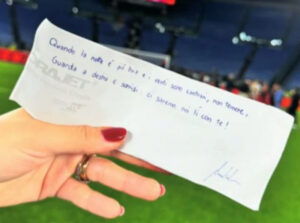 Quando la notte è più buia e i venti sono contrari, non temere,
Guarda a destra e sorridi: ci saremo noi lì con te!